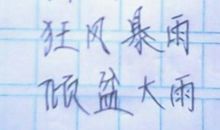 狂风暴雨
倾盆大雨